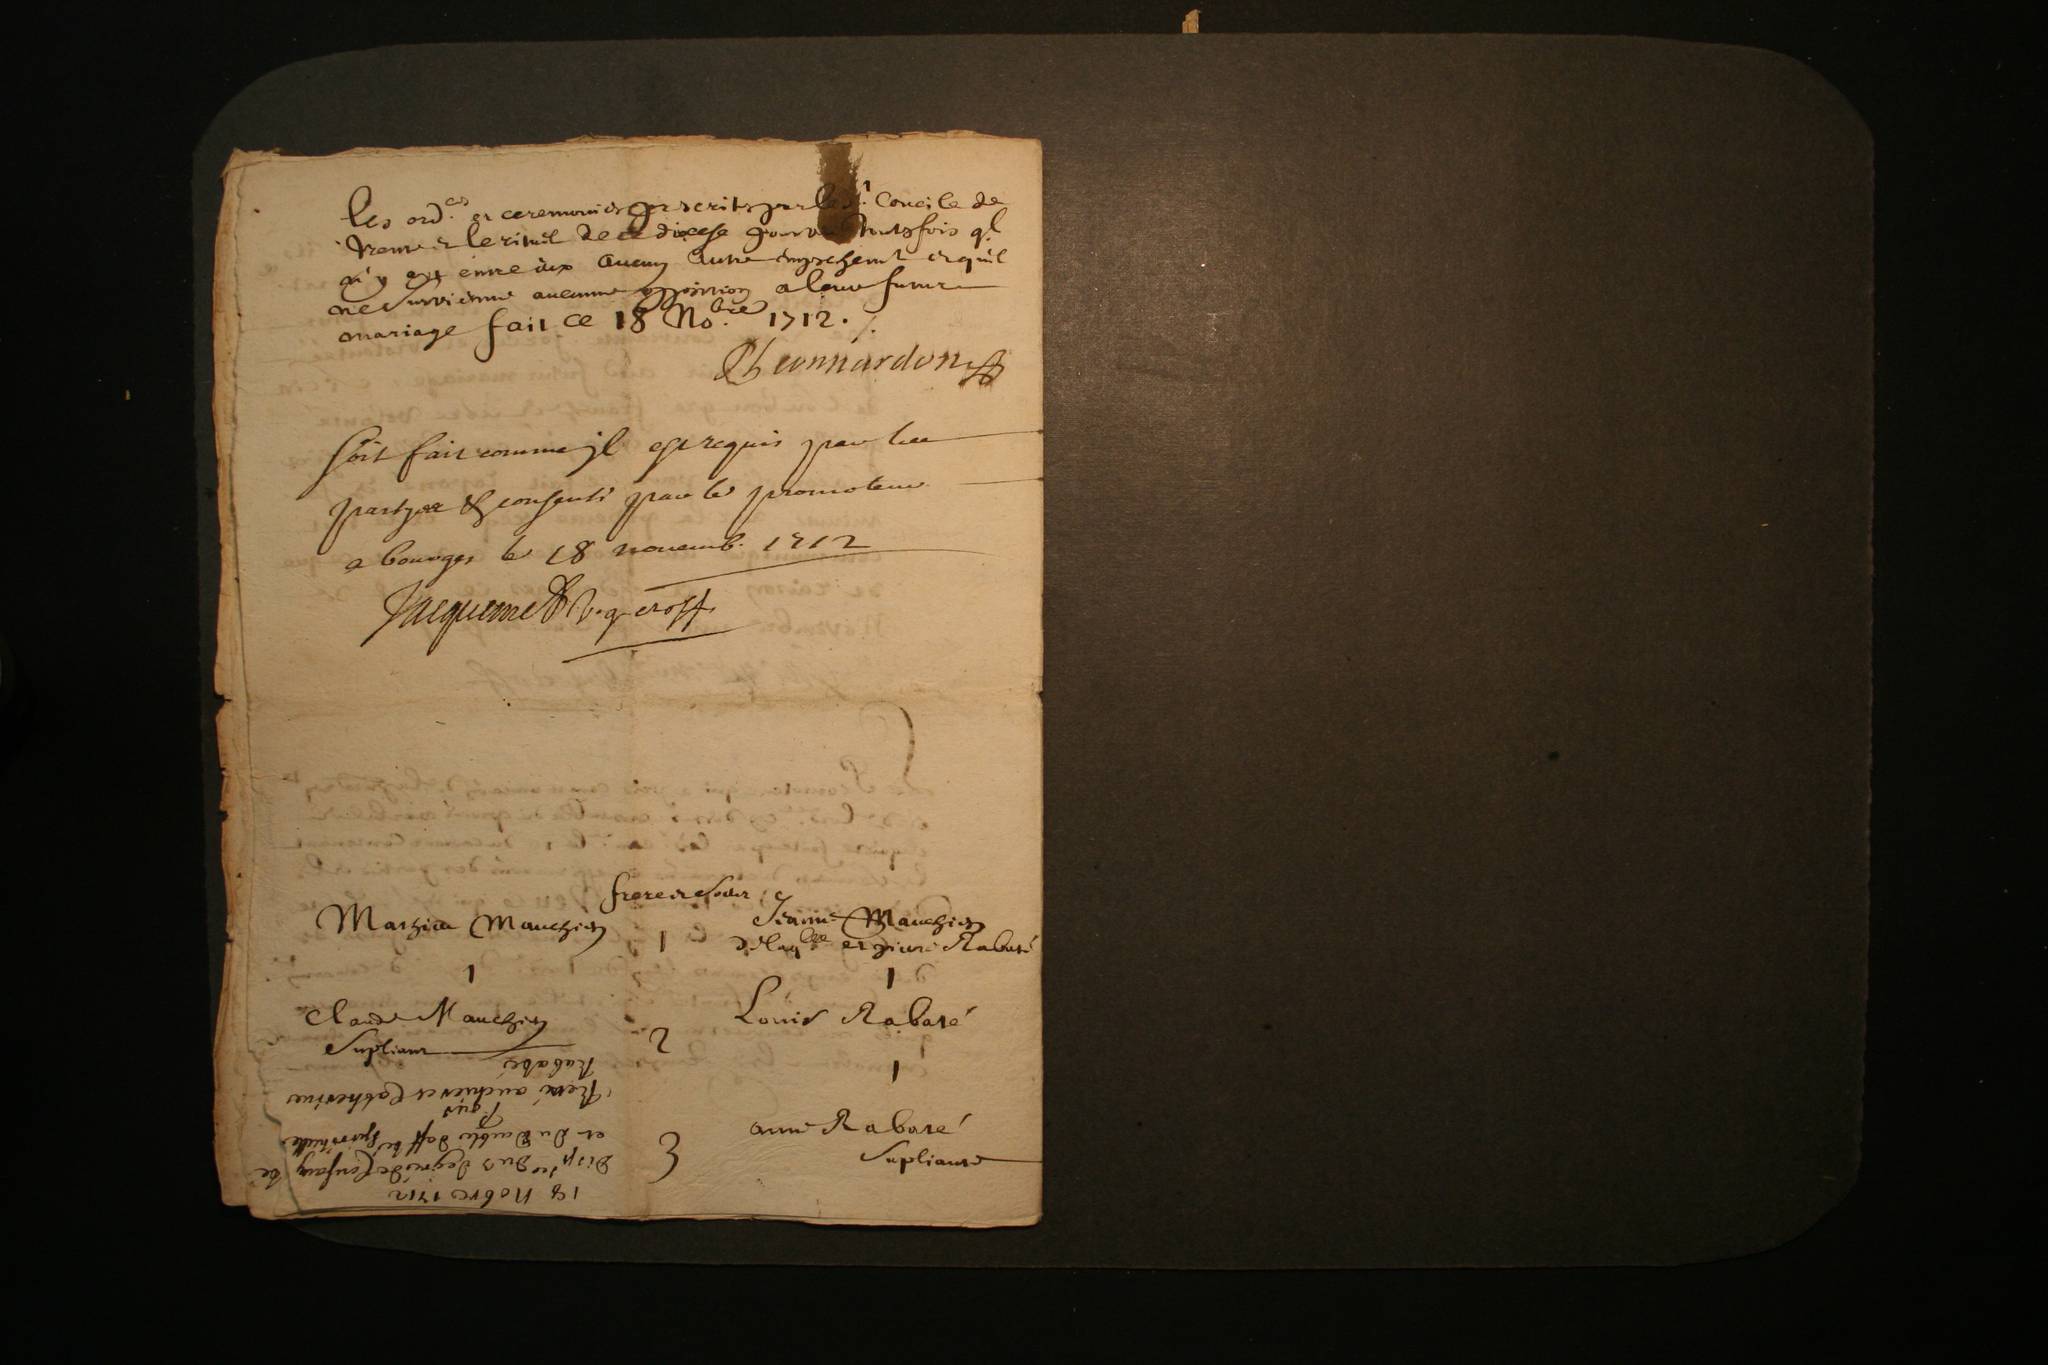 les ord.ces et ceremonies prescrits par le st. Concile de
Trente & le rituel de ce diocese pourvu toutefois q'l
n'y ayt entre eux aucun autre empeschemt et qu'il
ne survienne aucunne opposition a leur futur
mariage fait ce 18 No.bre 1712.
Leonnardon
soit fait comme jl est requis par les
partyes & consenti par le promoteur
a bourges le 18 novemb. 1712
Jacquemet v.g. et off.
frere et soeur
Mathieu Mauchien 1 Jeanne Mauchien
et pierre Rabaté
1 1
Claude Mauchien 2 Louis Rabaté
Supliant
1
3 anne Rabaté
Supliante
18 Nobre 1712
Disp.ce du 3 degré de Consang.té
et du Double d'aff.té spirituelle
p. que
René auchien et Catherine
Rabaté